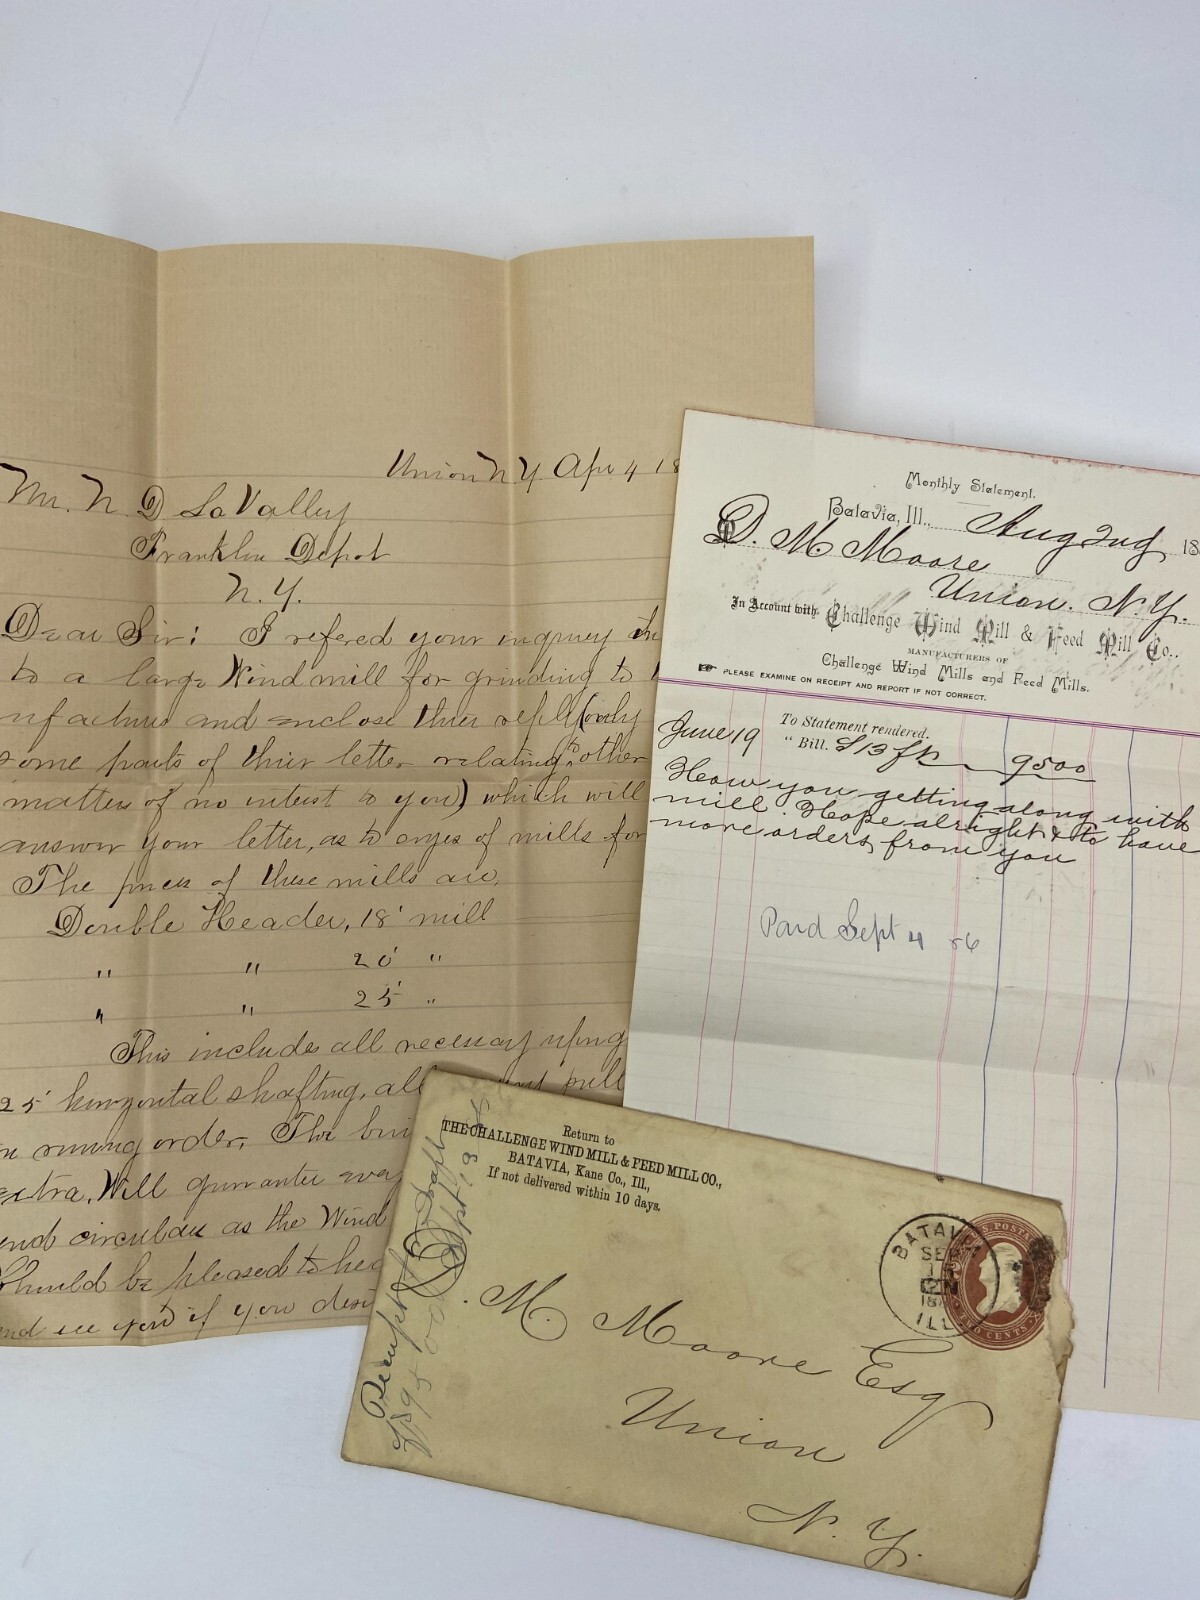 Union N Y Apr 4 18
Mr. N D LaValley
Franklin Depot
N. Y.
Dear Sir: I refered your inquiry
to a large Wind mill for grinding to
ufacturers and enclose thier reply (only
some parts of thier letter relating to other
matters of no interest to you) which will
answer your letter, as to sizes of mills for
The prices of these mills are,
Double Header, 18' mill
" " 20' "
" " 25' "
This includes all necessary uprig
25' horizontal shafting, all
in running order, The bui
extra. Will guarantee
end circular as the Wind
Should be pleased to hea
and see you if you desi
Monthly Statement.
Batavia, Ill., Aug 2nd 18
D. M. Moore
Union. N. Y.
In Account with Challenge Wind Mill & Feed Mill Co.,
MANUFACTURERS OF
Challenge Wind Mills and Feed Mills.
PLEASE EXAMINE ON RECEIPT AND REPORT IF NOT CORRECT.
June 19 To Statement rendered.
" Bill. 9500
How you getting along with
mill. Hope alright & to have
more orders from you
Paid Sept 4 86
Return to
THE CHALLENGE WIND MILL & FEED MILL CO.,
BATAVIA, Kane Co., Ill.,
If not delivered within 10 days.
BATAVIA
SEP
ILL
U.S. POSTA
TWO CENTS
D. M. Moore Esq
Union
N. Y.
Receipt for Draft
$95.00 Sept 13